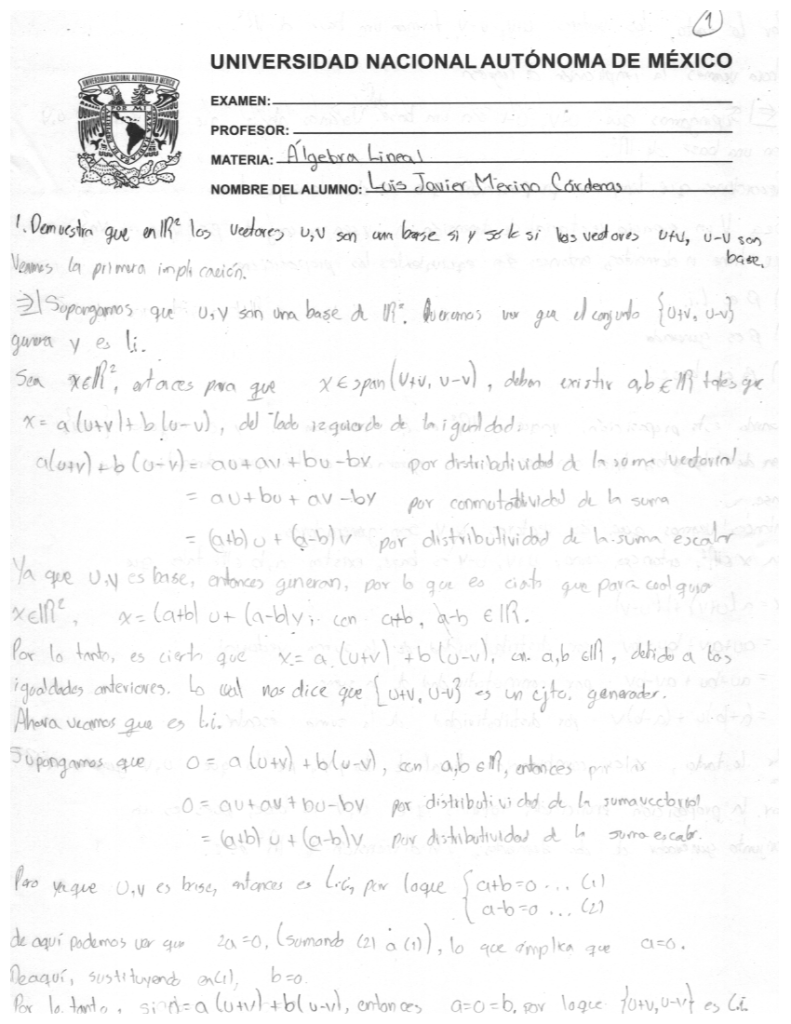 1
UNIVERSIDAD NACIONAL AUTÓNOMA DE MÉXICO
EXAMEN:
PROFESOR:
MATERIA: Álgebra Lineal
NOMBRE DEL ALUMNO: Luis Javier Merino Córdenas
1. Demuestra que en ℝ² los vectores u,v son una base si y solo si los vectores u+v, u-v son
base.
Veamos la primera implicación.
⇒| Supongamos que u,v son una base de ℝ². Queremos ver que el conjunto {u+v, u-v}
genera y es l.i.
Sea x∈ℝ², entonces para que x∈span(u+v, u-v), deben existir a,b∈ℝ tales que
x = a(u+v)+b(u-v), del lado izquierdo de la igualdad.
a(u+v)+b(u-v) = au+av+bu-bv por distributividad de la suma vectorial
= au+bu+av-bv por conmutatividad de la suma
= (a+b)u+(a-b)v por distributividad de la suma escalar
Ya que u,v es base, entonces generan, por lo que es cierto que para cualquier
x∈ℝ², x=(a+b)u+(a-b)v; con a+b, a-b∈ℝ.
Por lo tanto, es cierto que x=a(u+v)+b(u-v), con a,b∈ℝ, debido a las
igualdades anteriores. Lo cual nos dice que {u+v, u-v} es un cjto. generador.
Ahora veamos que es l.i.
Supongamos que 0 = a(u+v)+b(u-v), con a,b∈ℝ, entonces por
0 = au+av+bu-bv por distributividad de la suma vectorial
= (a+b)u+(a-b)v por distributividad de la suma escalar.
Pero ya que u,v es base, entonces es l.i., por lo que { a+b=0 ... (1)
a-b=0 ... (2)
de aquí podemos ver que 2a=0, (sumando (2) a (1)), lo que implica que a=0.
De aquí, sustituyendo en (1), b=0.
Por lo tanto, si 0=a(u+v)+b(u-v), entonces a=0=b, por lo que {u+v,u-v} es l.i.